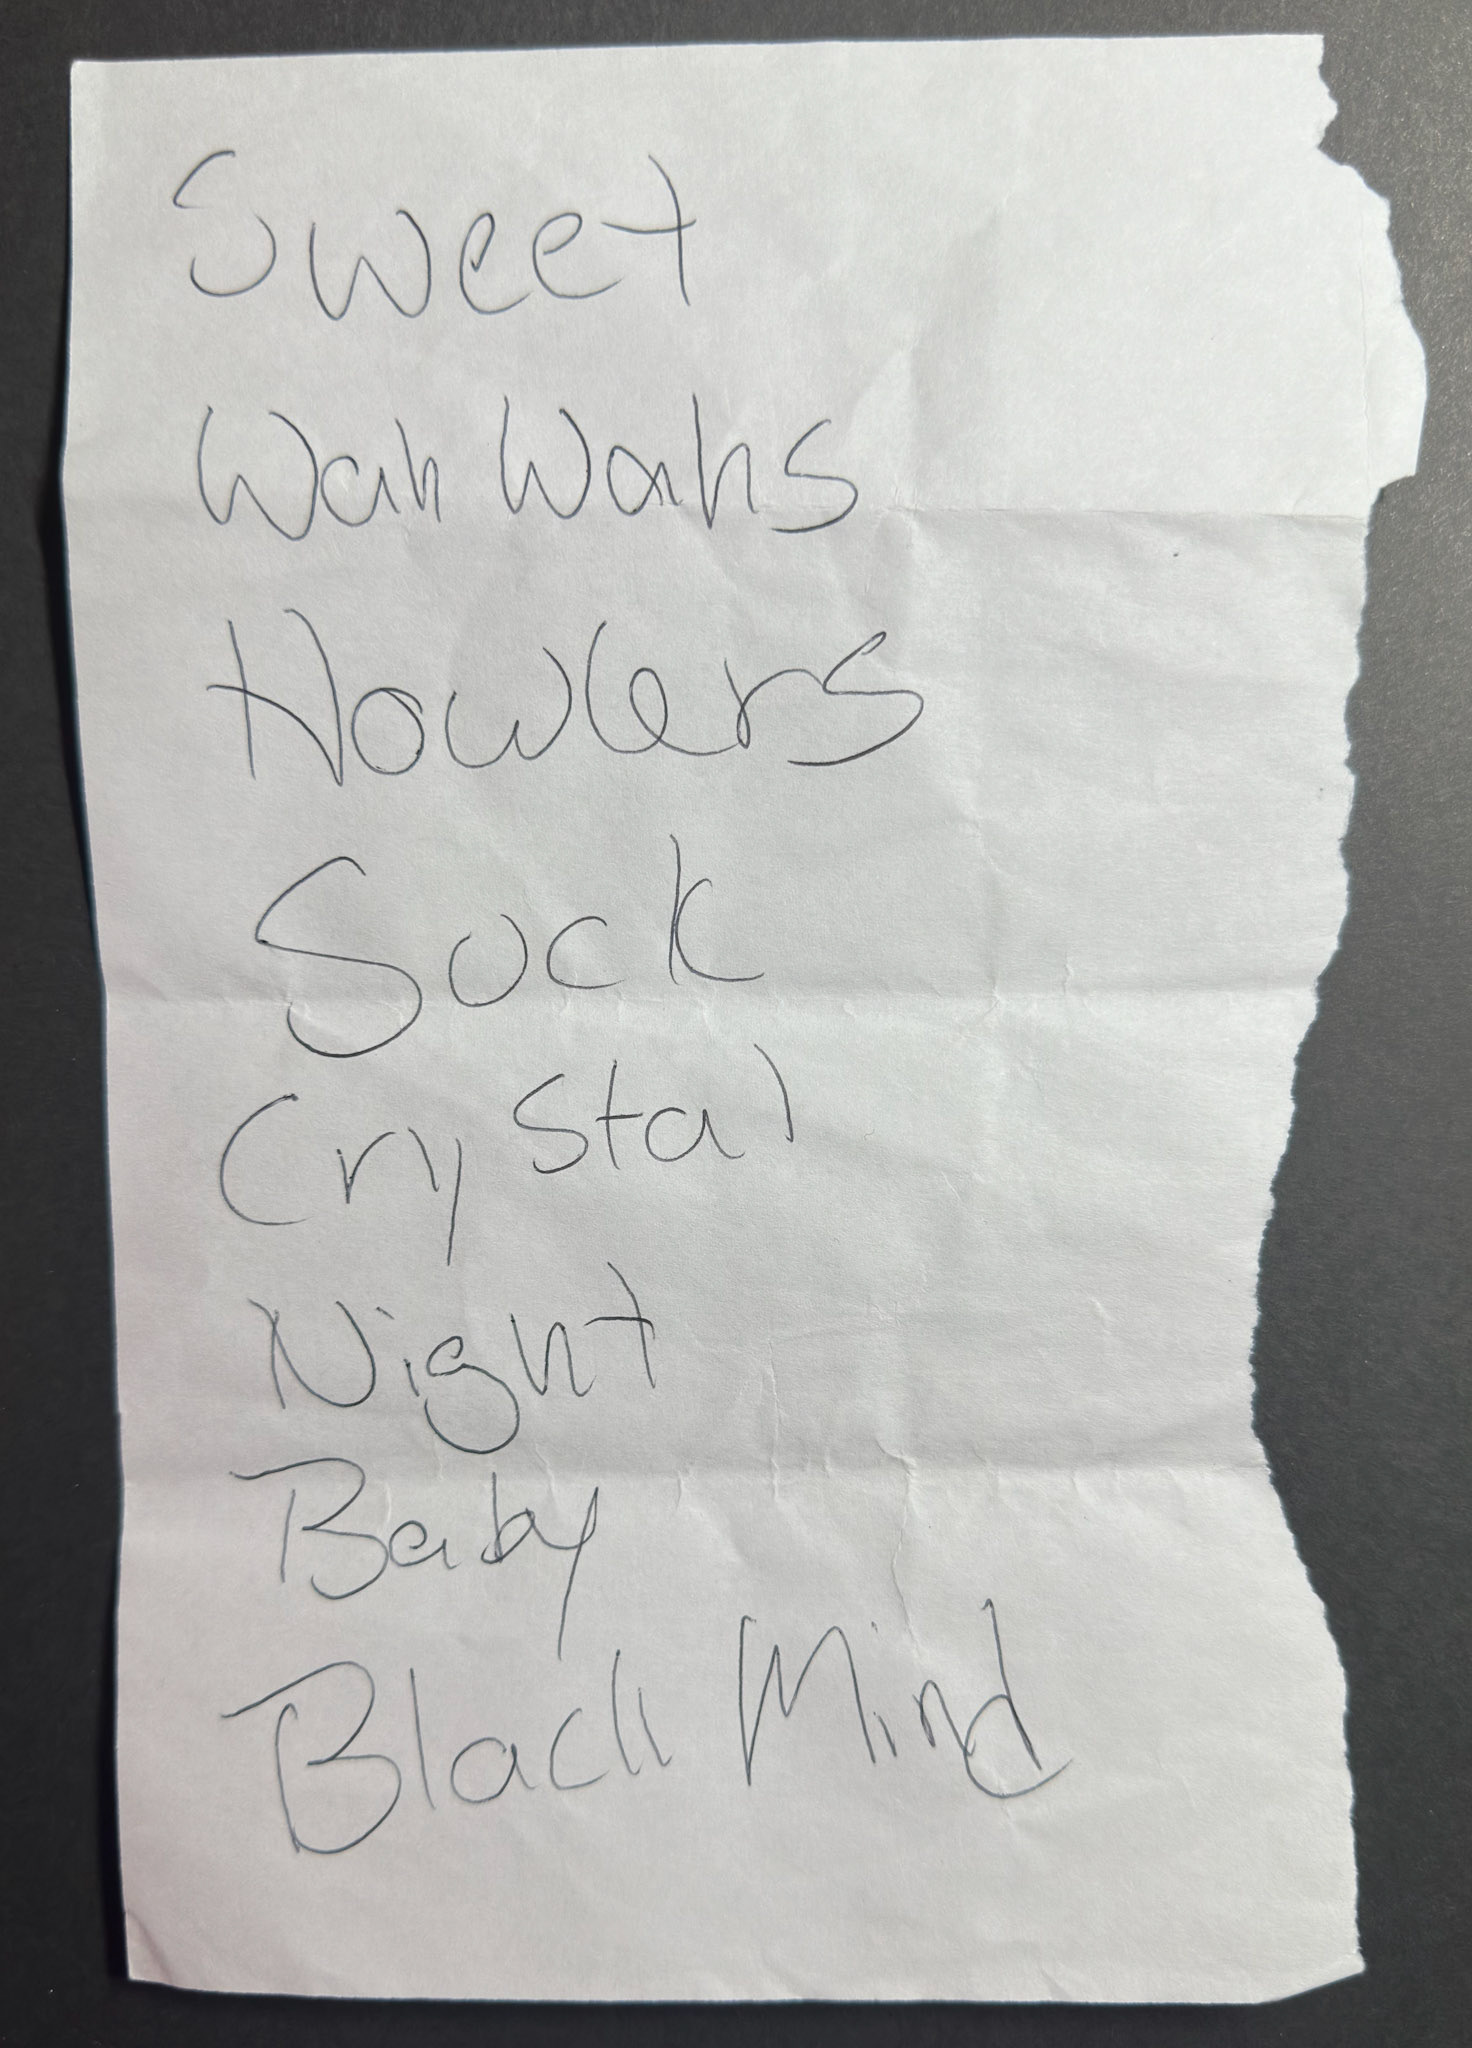 Sweet
Wah Wahs
Howlers
Suck
Crystal
Night
Baby
Black Mind